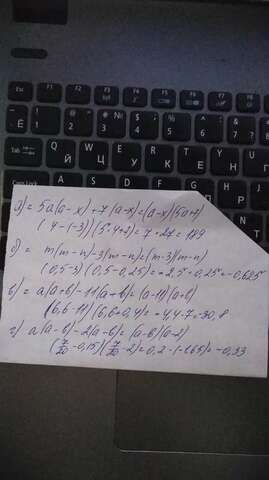 Esc F1 F2 F3 F4 F5 F6 F7 F8
Ё 1 2 3 № 4 5 6 7
Tab Й Ц У К Е Н
Caps Lock
а) = 5a(a-x)+7(a-x)=(a-x)(5a+7)
(4-(-3))(5·4+7)=7·27=189
б) = m(m-n)-3(m-n)=(m-3)(m-n)
(0,5-3)(0,5-0,25)=-2,5·0,25=-0,625
в) = a(a+b)-11(a+b)=(a-11)(a+b)
(6,6-11)(6,6+0,4)=-4,4·7=-30,8
г) a(a-b)-2(a-b)=(a-b)(a-2)
(7/20-0,15)(7/20-2)=0,2·(-1,65)=-0,33